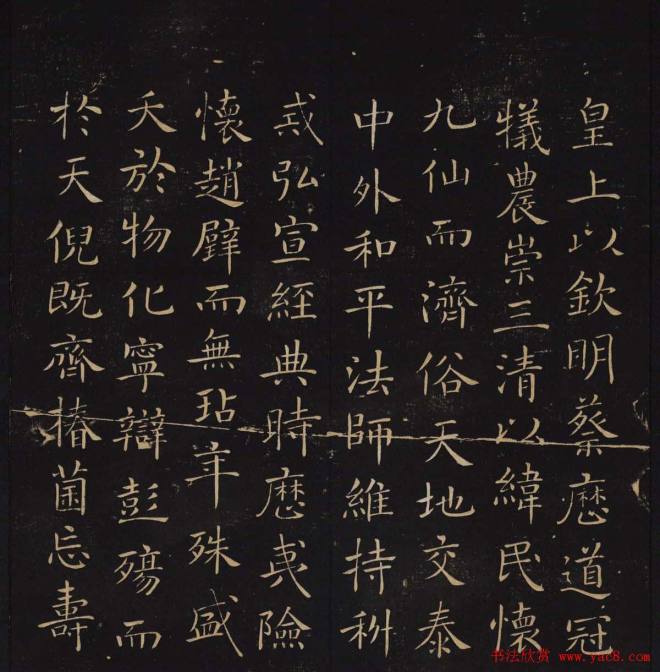 皇上以欽明纂曆道冠
犧農崇三清以緯民懷
九仙而濟俗天地交泰
中外和平法師維持科
戒弘宣經典時歷夷險
懷趙璧而無玷年殊盛
夭於物化寧辯彭殤而
於天倪既齊椿菌忘壽
书法欣赏 www.yac8.com